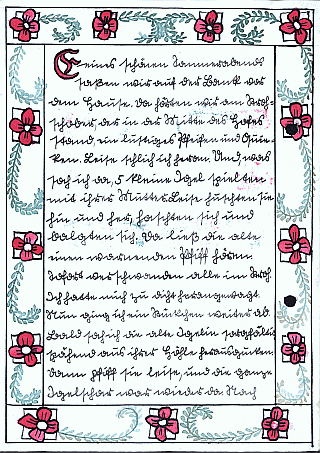 Eines schönen Sommerabends
saßen wir auf der Bank vor
dem Hause. Da hörten wir am Stroh-
schober, der in der Mitte des Hofes
stand, ein lustiges Pfeifen und Quie-
ken. Leise schlich ich heran. Und, was
sah ich da, 5 kleine Igel spielten
mit ihrer Mutter. Leise huschten sie
hin und her, haschten sich und
balgten sich. Da ließ die alte
einen warnenden Pfiff hören
Sofort verschwanden alle im Stroh.
Ich hatte mich zu dicht herangewagt.
Nun ging ich ein Stückchen weiter ab.
Bald sah ich die alte Igelin sorgfältig
spähend aus ihrer Höhle herausgucken.
Dann pfiff sie leise, und die ganze
Igelschar war wieder da. Nach